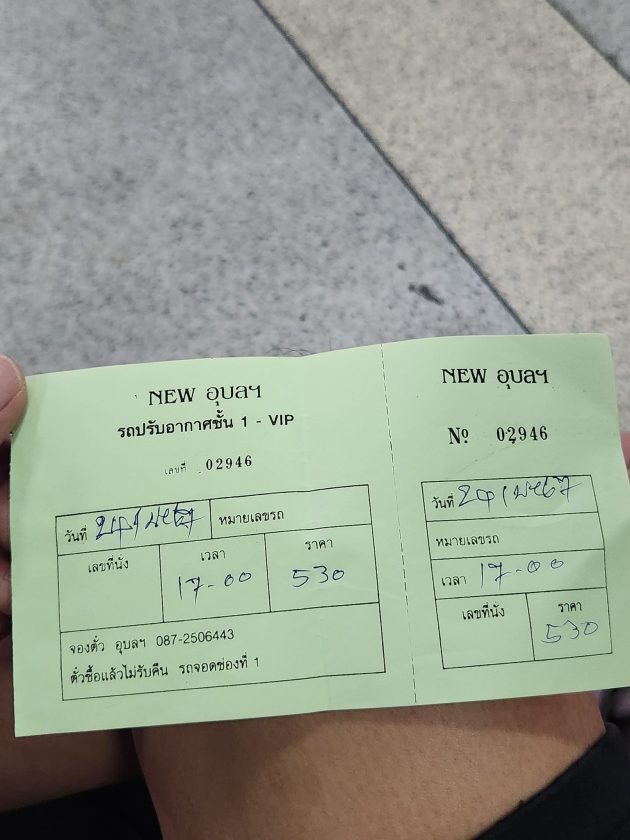 NEW อุบลฯ
รถปรับอากาศชั้น 1 - VIP
เลขที่ 02946
วันที่
หมายเลขรถ
เลขที่นั่ง เวลา ราคา
17-00 530
จองตั๋ว อุบลฯ 087-2506443
ตั๋วซื้อแล้วไม่รับคืน รถจอดช่องที่ 1
NEW อุบลฯ
№ 02946
วันที่
หมายเลขรถ
เวลา 17-00
เลขที่นั่ง ราคา
530